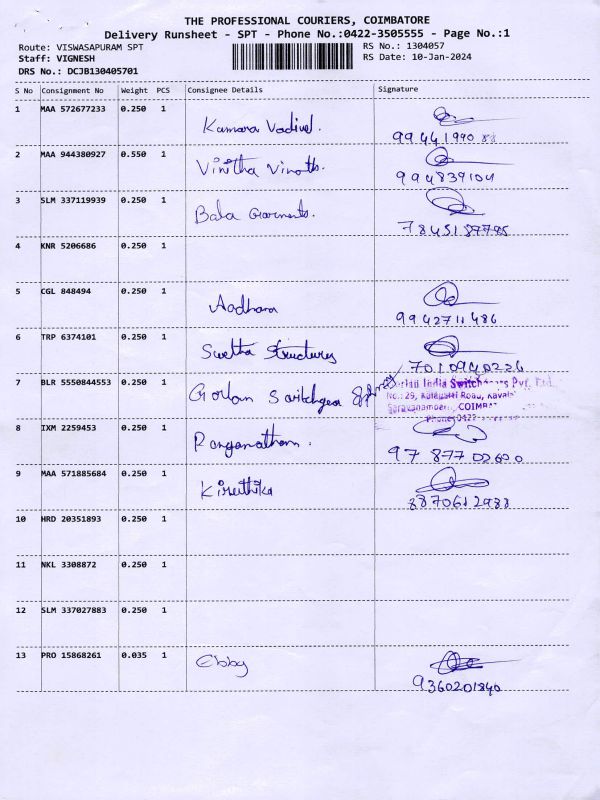 THE PROFESSIONAL COURIERS, COIMBATORE
Delivery Runsheet - SPT - Phone No.:0422-3505555 - Page No.:1
Route: VISWASAPURAM SPT
RS No.: 1304057
Staff: VIGNESH
RS Date: 10-Jan-2024
DRS No.: DCJB130405701
S No Consignment No Weight PCS Consignee Details Signature
1 MAA 572677233 0.250 1
Kumara Vadivel.
99441990
2 MAA 944380927 0.550 1
Vinitha Vinoth.
994839104
3 SLM 337119939 0.250 1
Bala Garments.
7845187795
4 KNR 5206686 0.250 1
5 CGL 848494 0.250 1
Aadhara
9942711486
6 TRP 6374101 0.250 1
Swetha Structures
7010940226
7 BLR 5550844553 0.250 1
India Switchgears Pvt. Ltd.
No.: 29, Road,
Saravanampatti, COIMB
Phone: 0422
8 IXM 2259453 0.250 1
Ranganathan.
97877 02600
9 MAA 571885684 0.250 1
Kiruthika
8870612988
10 HRD 20351893 0.250 1
11 NKL 3308872 0.250 1
12 SLM 337027883 0.250 1
13 PRO 15868261 0.035 1
Ebby
9360201840